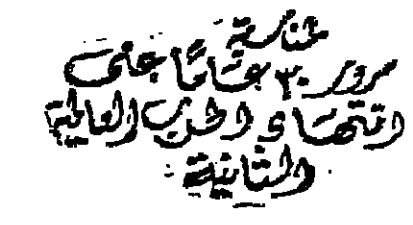 بمناسبة
مرور ٣٠ عامًا على
انتهاء الحرب العالمية
الثانية: